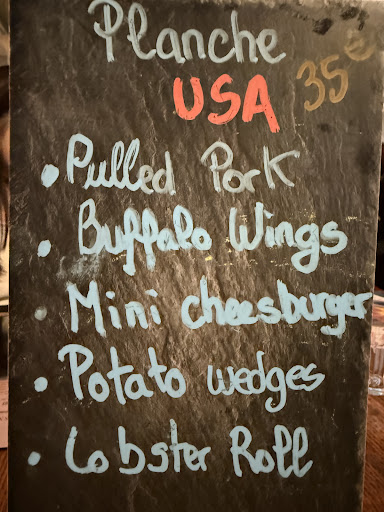 Planche
USA 35€
• Pulled Pork
• Buffalo Wings
• Mini cheesburger
• Potato wedges
• Lobster Roll